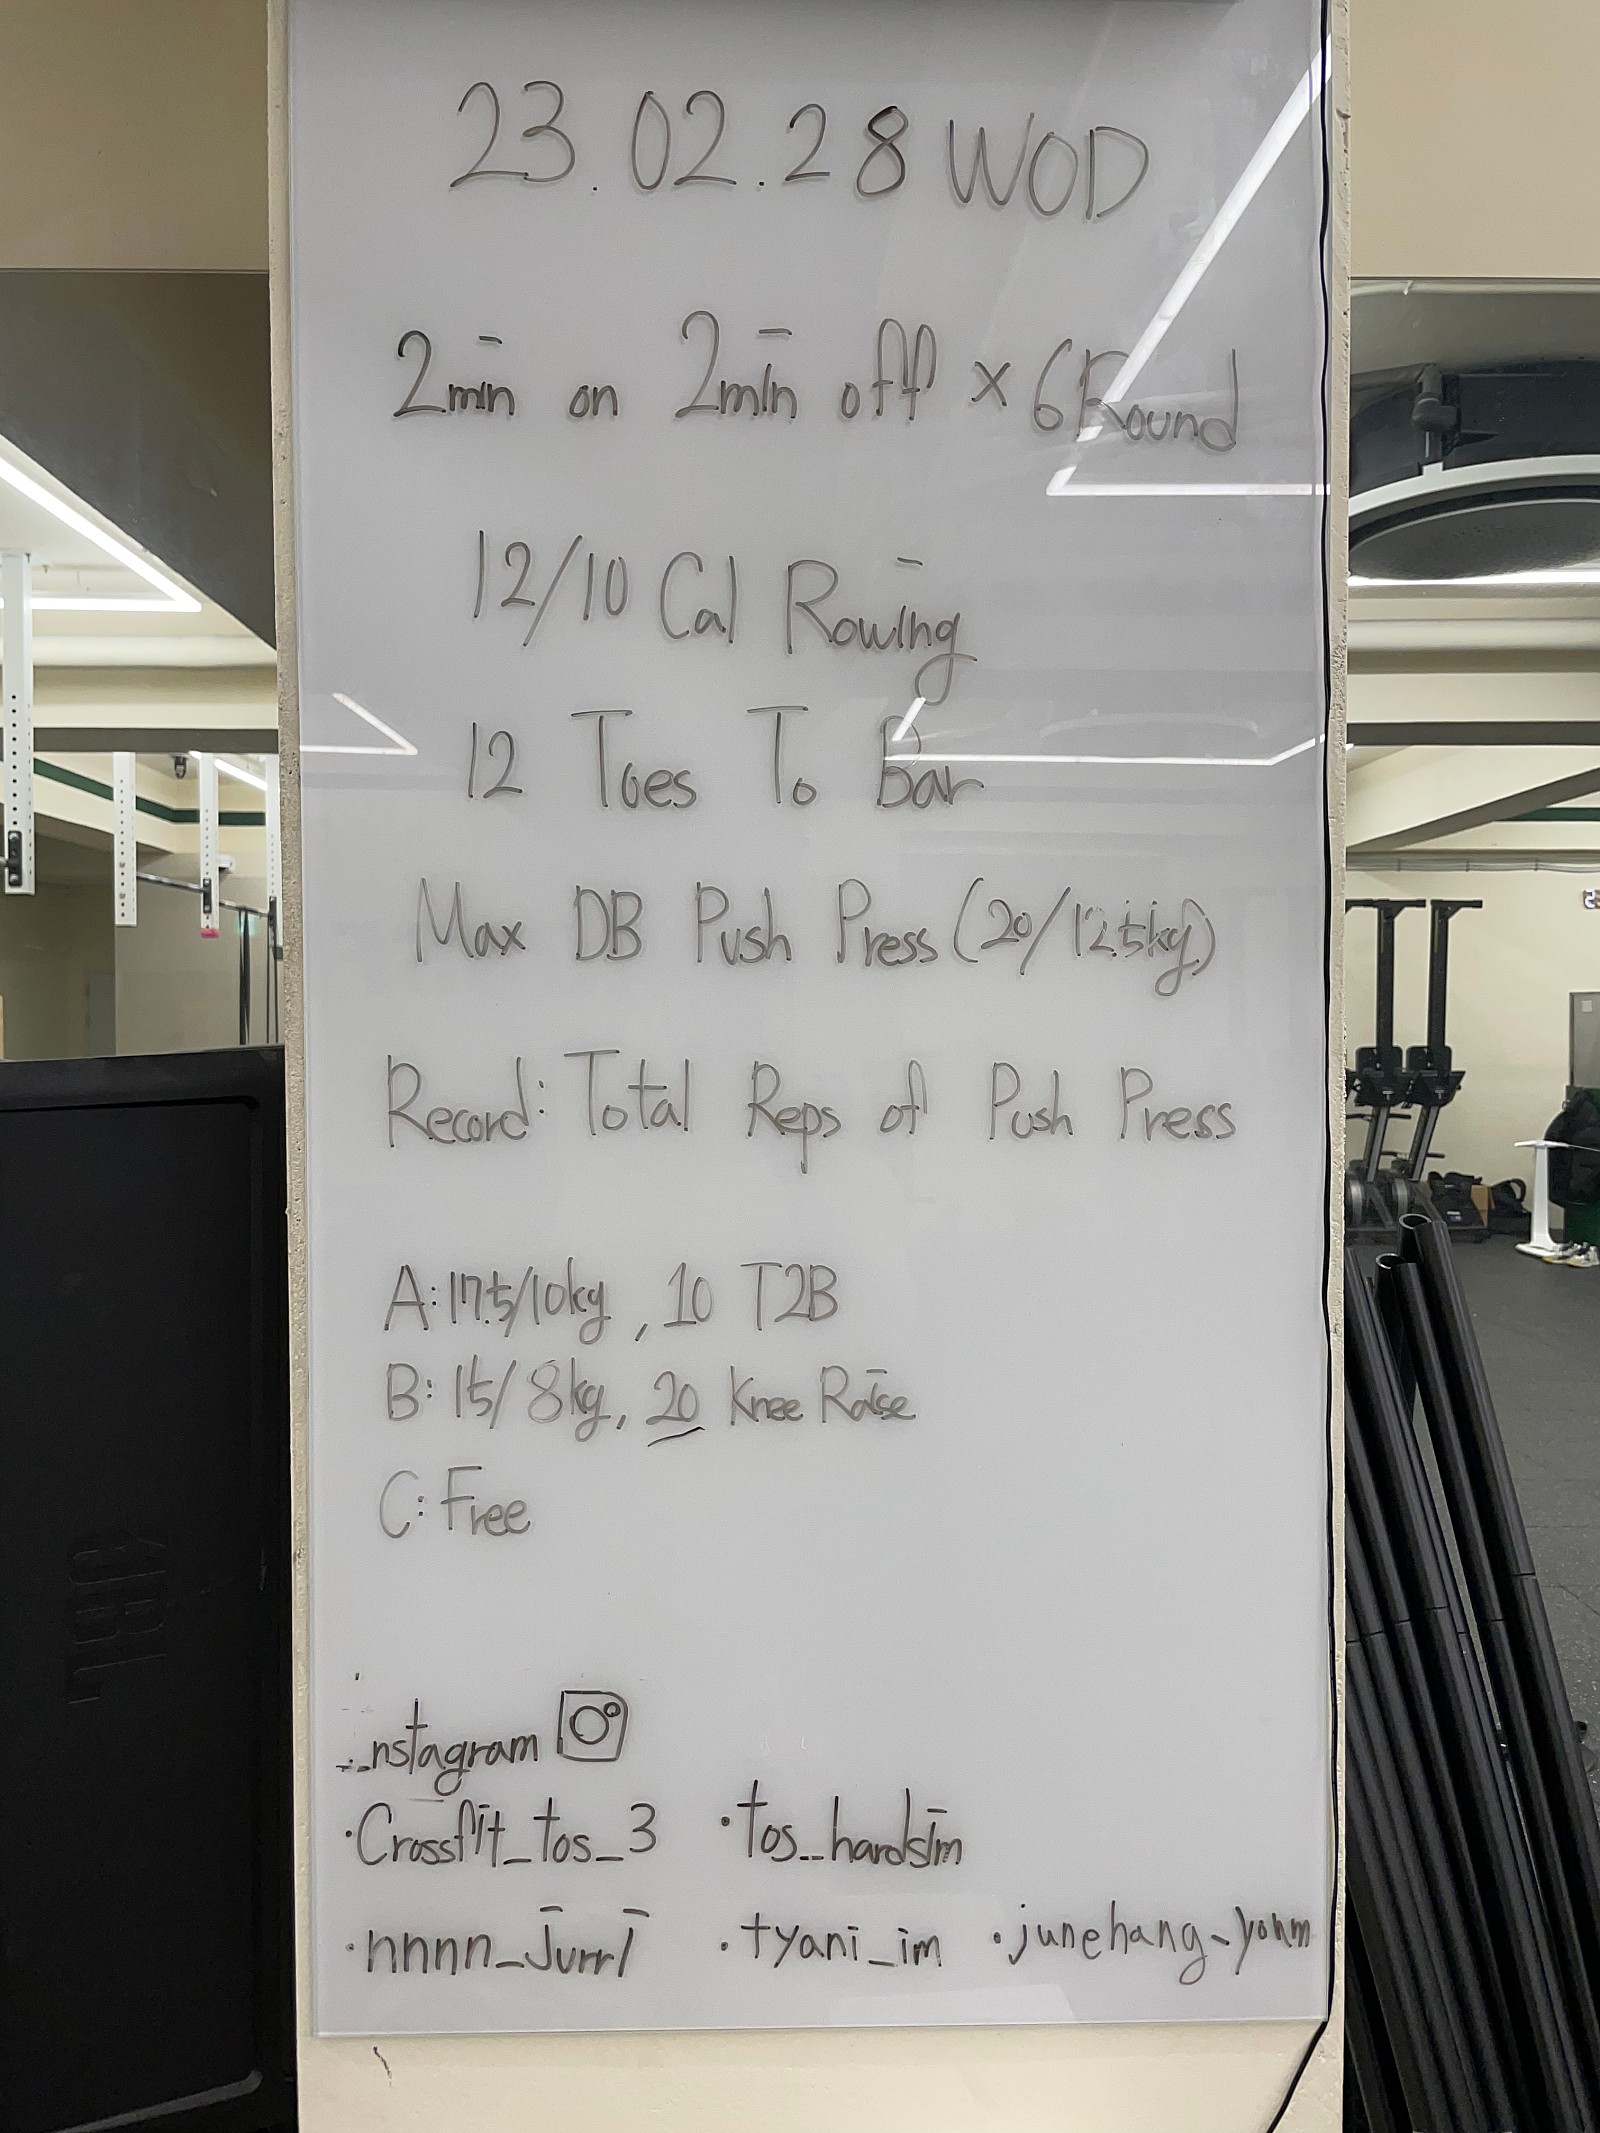 23.02.28 WOD
2min on 2min off × 6Round
12/10 Cal Rowing
12 Toes To Bar
Max DB Push Press (20/12.5kg)
Record: Total Reps of Push Press
A: 17.5/10kg, 10 T2B
B: 15/8kg, 20 Knee Raise
C: Free
nstagram
·Crossfit_tos_3 ·tos_hardsim
·nnnn_jurri ·tyani_im ·junehang_yohm
JBL